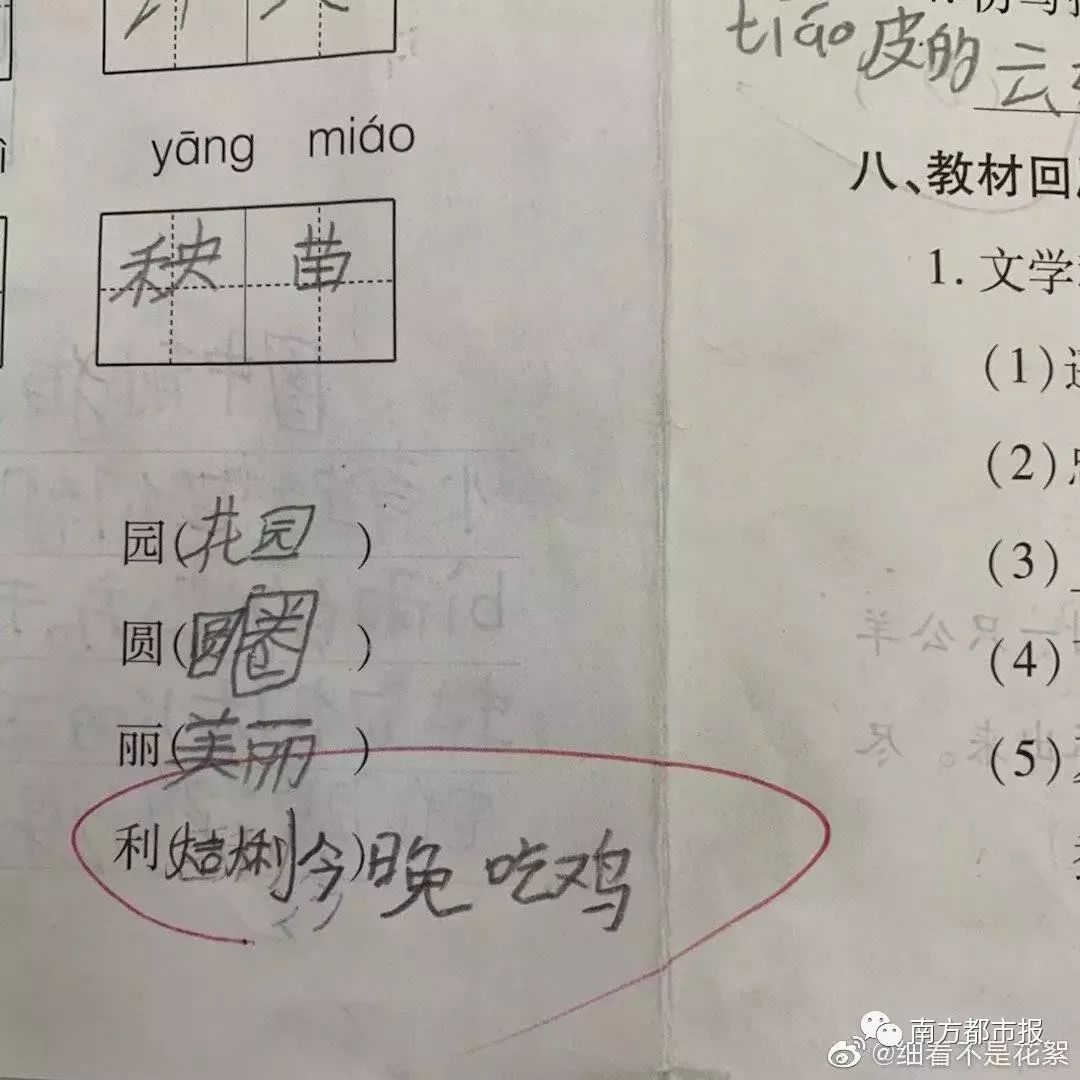 yāng miáo
秧苗
园(花园)
圆(圆圈)
丽(美丽)
利(大吉大利今)晚吃鸡
tiáo皮的云
八、教材回
1.文学
(1)
(2)
(3)
(4)
(5)
南方都市报
@细看不是花絮